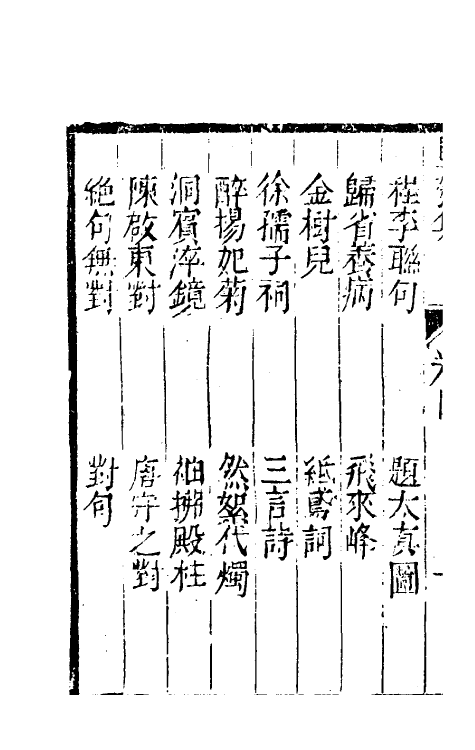 程李聯句　題太真圖
歸省養病　飛來峰
金樹兒　紙鳶詞
徐孺子祠　三言詩
醉楊妃菊　然絮代燭
洞賓淬鏡　袖拂殿柱
陳啟東對　唐守之對
絕句無對　對句